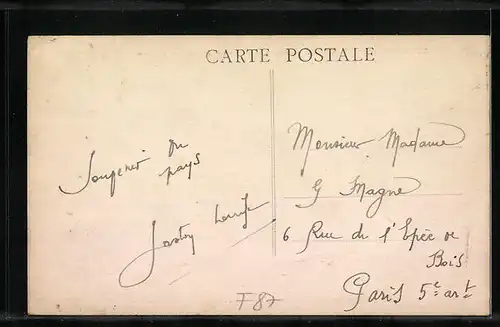 CARTE POSTALE
Souvenir du
pays
Gaston
Monsieur Madame
G Magne
6 Rue de l'Epée de
Bois
Paris 5e art
F87